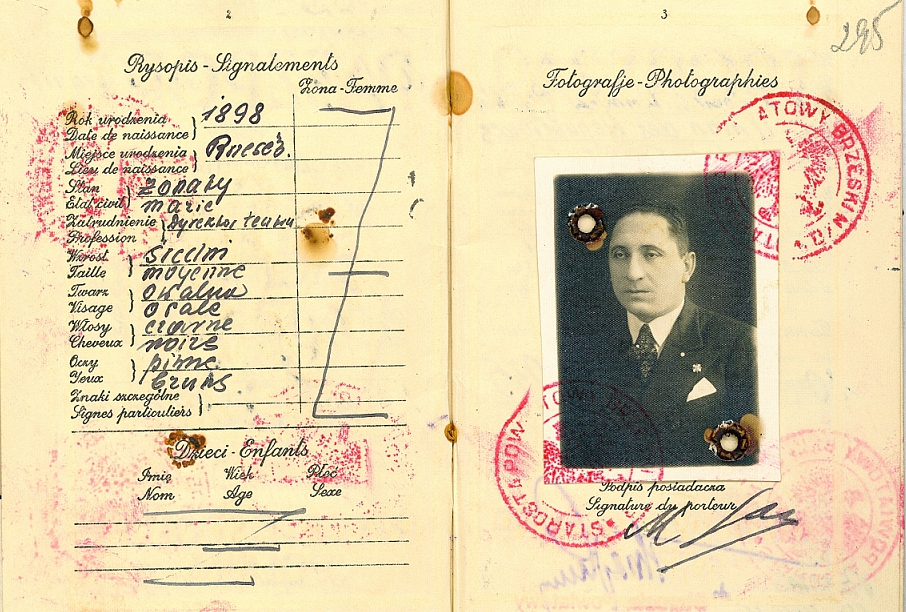 2
Rysopis - Signalements
Żona - Femme
Rok urodzenia
Date de naissance
1898
Miejsce urodzenia
Lieu de naissance
Stan
żonaty
Etat civil
marié
Zatrudnienie
Dyrektor teatru
Profession
Wzrost
średni
Taille
moyenne
Twarz
owalna
Visage
ovale
Włosy
czarne
Cheveux
noirs
Oczy
piwne
Yeux
bruns
Znaki szczególne
Signes particuliers
Dzieci - Enfants
Imię Wiek Płeć
Nom Age Sexe
3
295
Fotografje - Photographies
ATOWY BRZESKI N/B.
STAROSTA POW
ATOWY
Podpis posiadacza
Signature du porteur
M